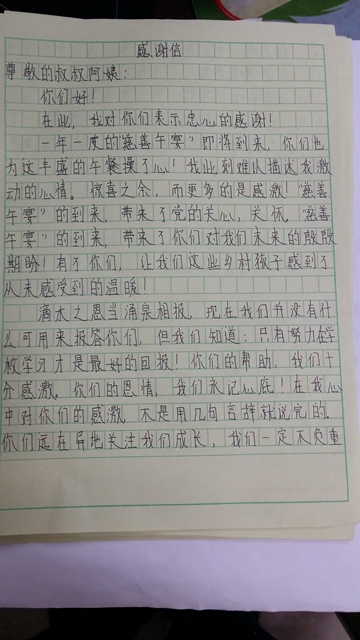 感谢信
尊敬的叔叔阿姨：
你们好！
在此，我对你们表示忠心的感谢！
一年一度的“慈善午宴”即将到来，你们也
为这丰盛的午餐操了心！我此刻难以描述我激
动的心情。惊喜之余，而更多的是感激！“慈善
午宴”的到来，带来了党的关心，关怀，“慈善
午宴”的到来，带来了你们对我们未来的殷殷
期盼！有了你们，让我们这些乡村孩子感到了
从未感受到的温暖！
滴水之恩当涌泉相报，现在我们并没有什
么可用来报答你们，但我们知道：只有努力在学
校学习才是最好的回报！你们的帮助，我们十
分感激。你们的恩情，我们永记心底！在我心
中对你们的感激，不是用几句言辞就说完的。
你们远在异地关注我们成长，我们一定不负重